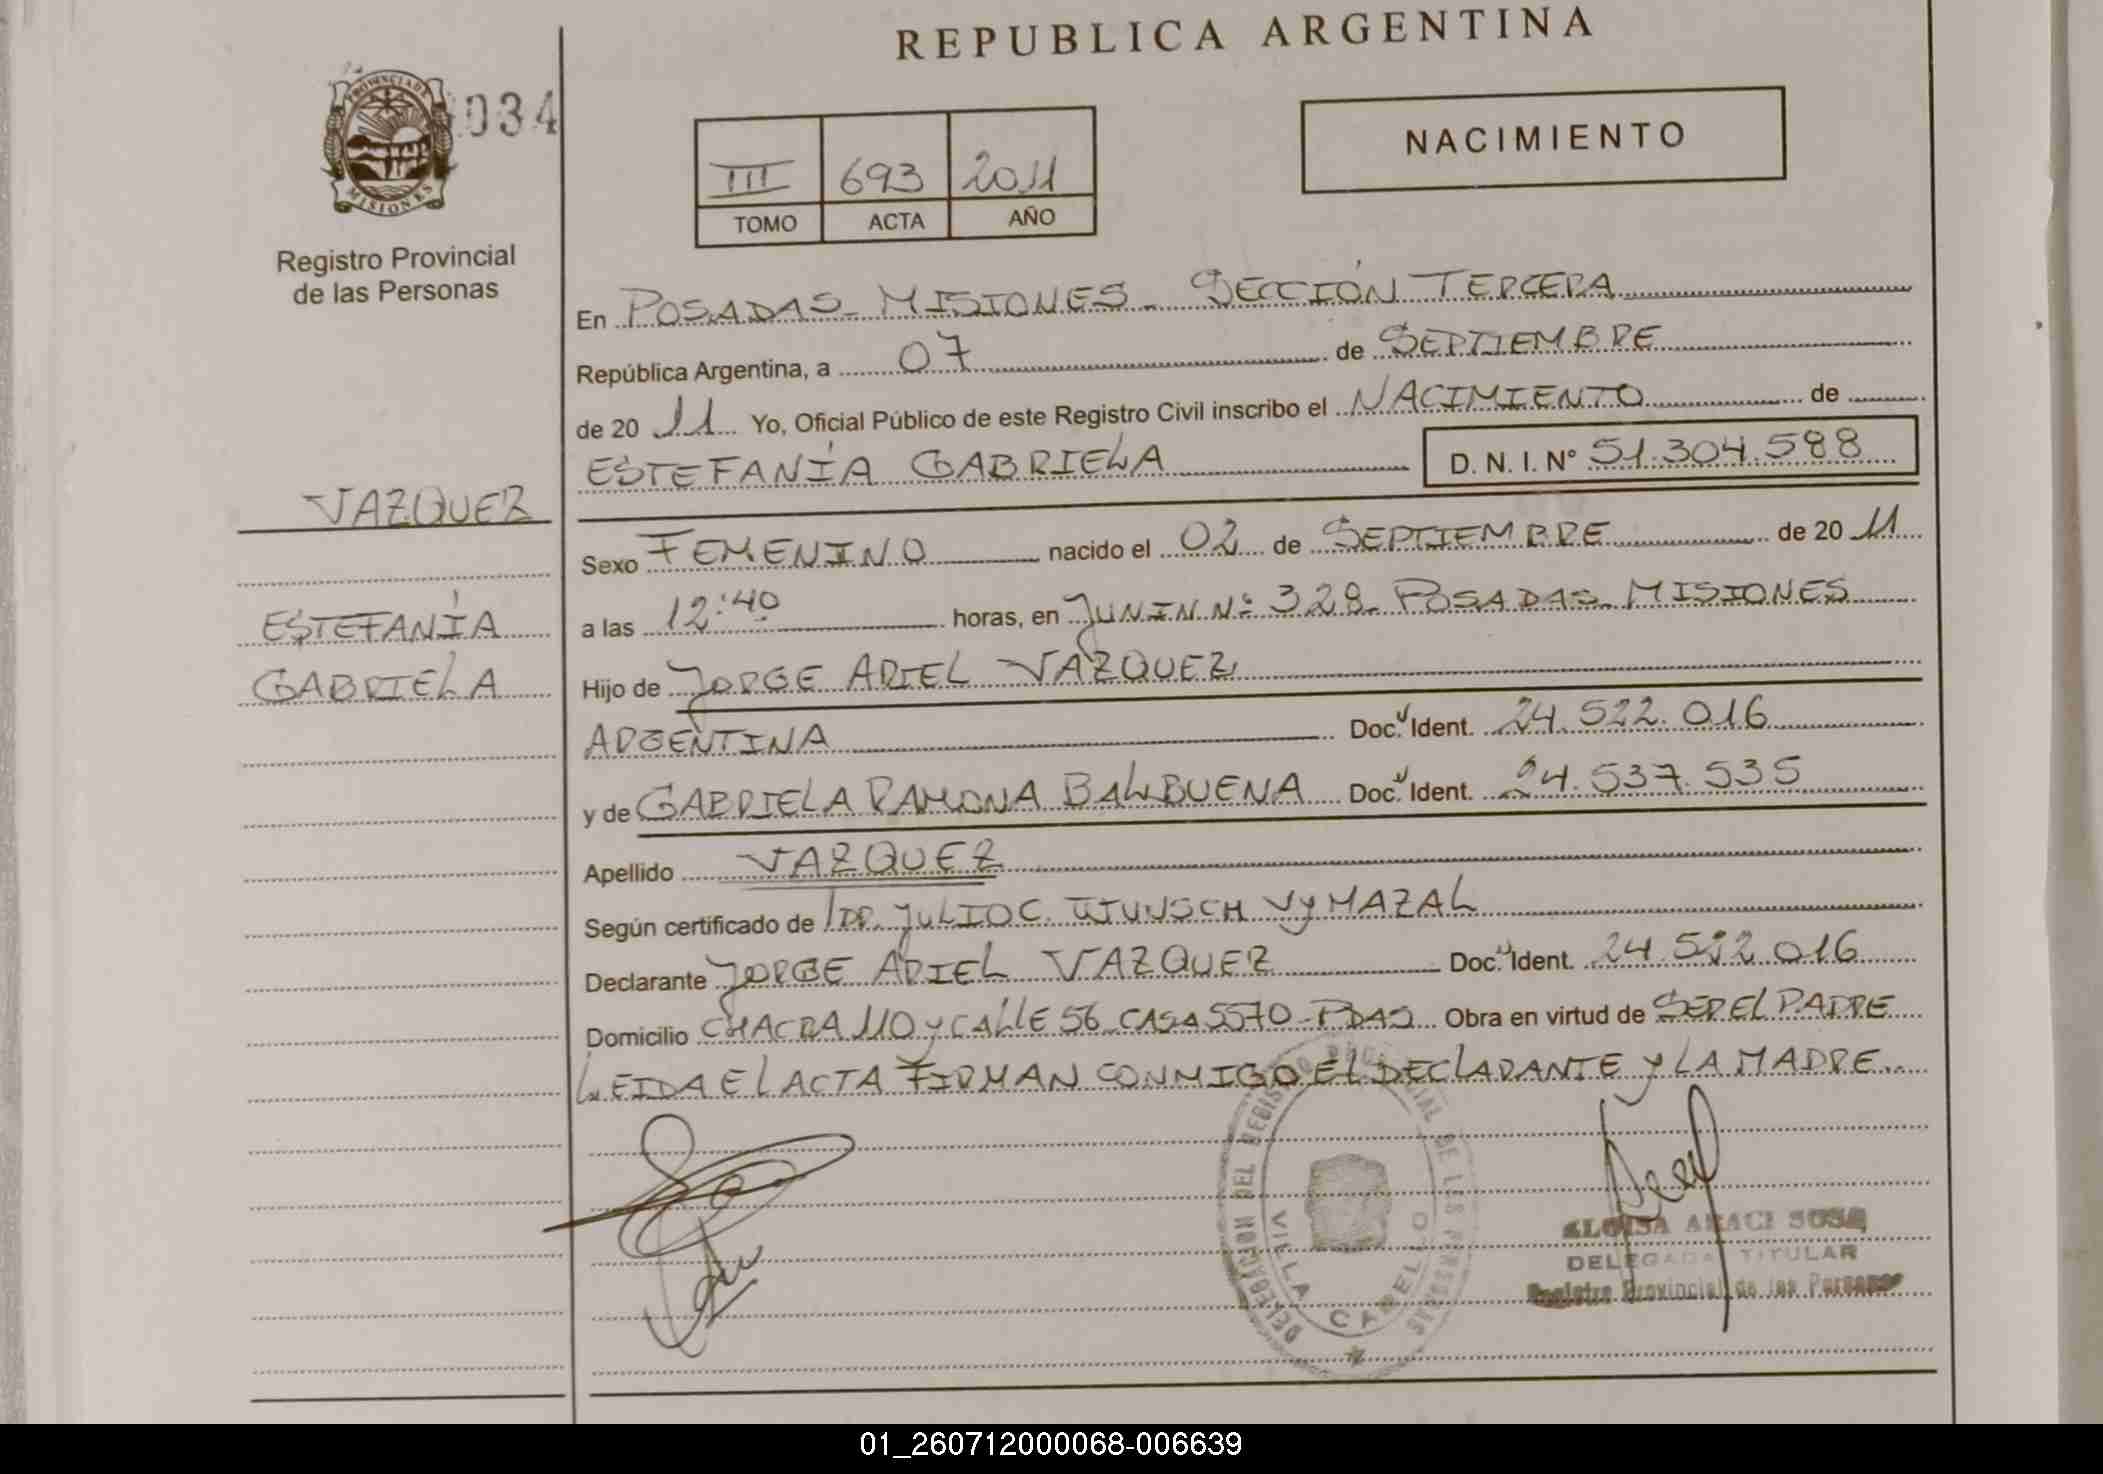 REPUBLICA ARGENTINA
PROVINCIA DE
MISIONES
034
Registro Provincial
de las Personas
III 693 2011
TOMO ACTA AÑO
NACIMIENTO
En POSADAS - MISIONES - SECCIÓN TERCERA
República Argentina, a 07 de SEPTIEMBRE
de 20 11 Yo, Oficial Público de este Registro Civil inscribo el NACIMIENTO de
ESTEFANÍA GABRIELA D. N. I. Nº 51.304.588
VAZQUEZ
ESTEFANÍA
GABRIELA
Sexo FEMENINO nacido el 02 de SEPTIEMBRE de 20 11
a las 12:40 horas, en JUNIN Nº 328 - POSADAS - MISIONES
Hijo de JORGE ARIEL VAZQUEZ
ARGENTINA Doc. Ident. 24.522.016
y de GABRIELA RAMONA BALBUENA Doc. Ident. 24.537.535
Apellido VAZQUEZ
Según certificado de DR. JULIO C. WUNSCH VYMAZAL
Declarante JORGE ARIEL VAZQUEZ Doc. Ident. 24.522.016
Domicilio CHACRA 110 y CALLE 56 CASA 5570 - PDAS Obra en virtud de SER EL PADRE
LEIDA EL ACTA FIRMAN CONMIGO EL DECLARANTE Y LA MADRE
DELEGACION DEL REGISTRO PROVINCIAL DE LAS PERSONAS
VILLA CABELLO
ARACI SOSA
DELEGADA TITULAR
Registro Provincial de las Personas
01_260712000068-006639